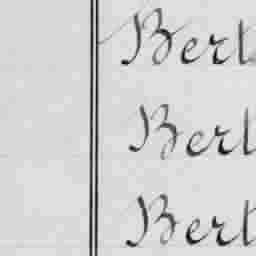 Bert
Bert
Bert